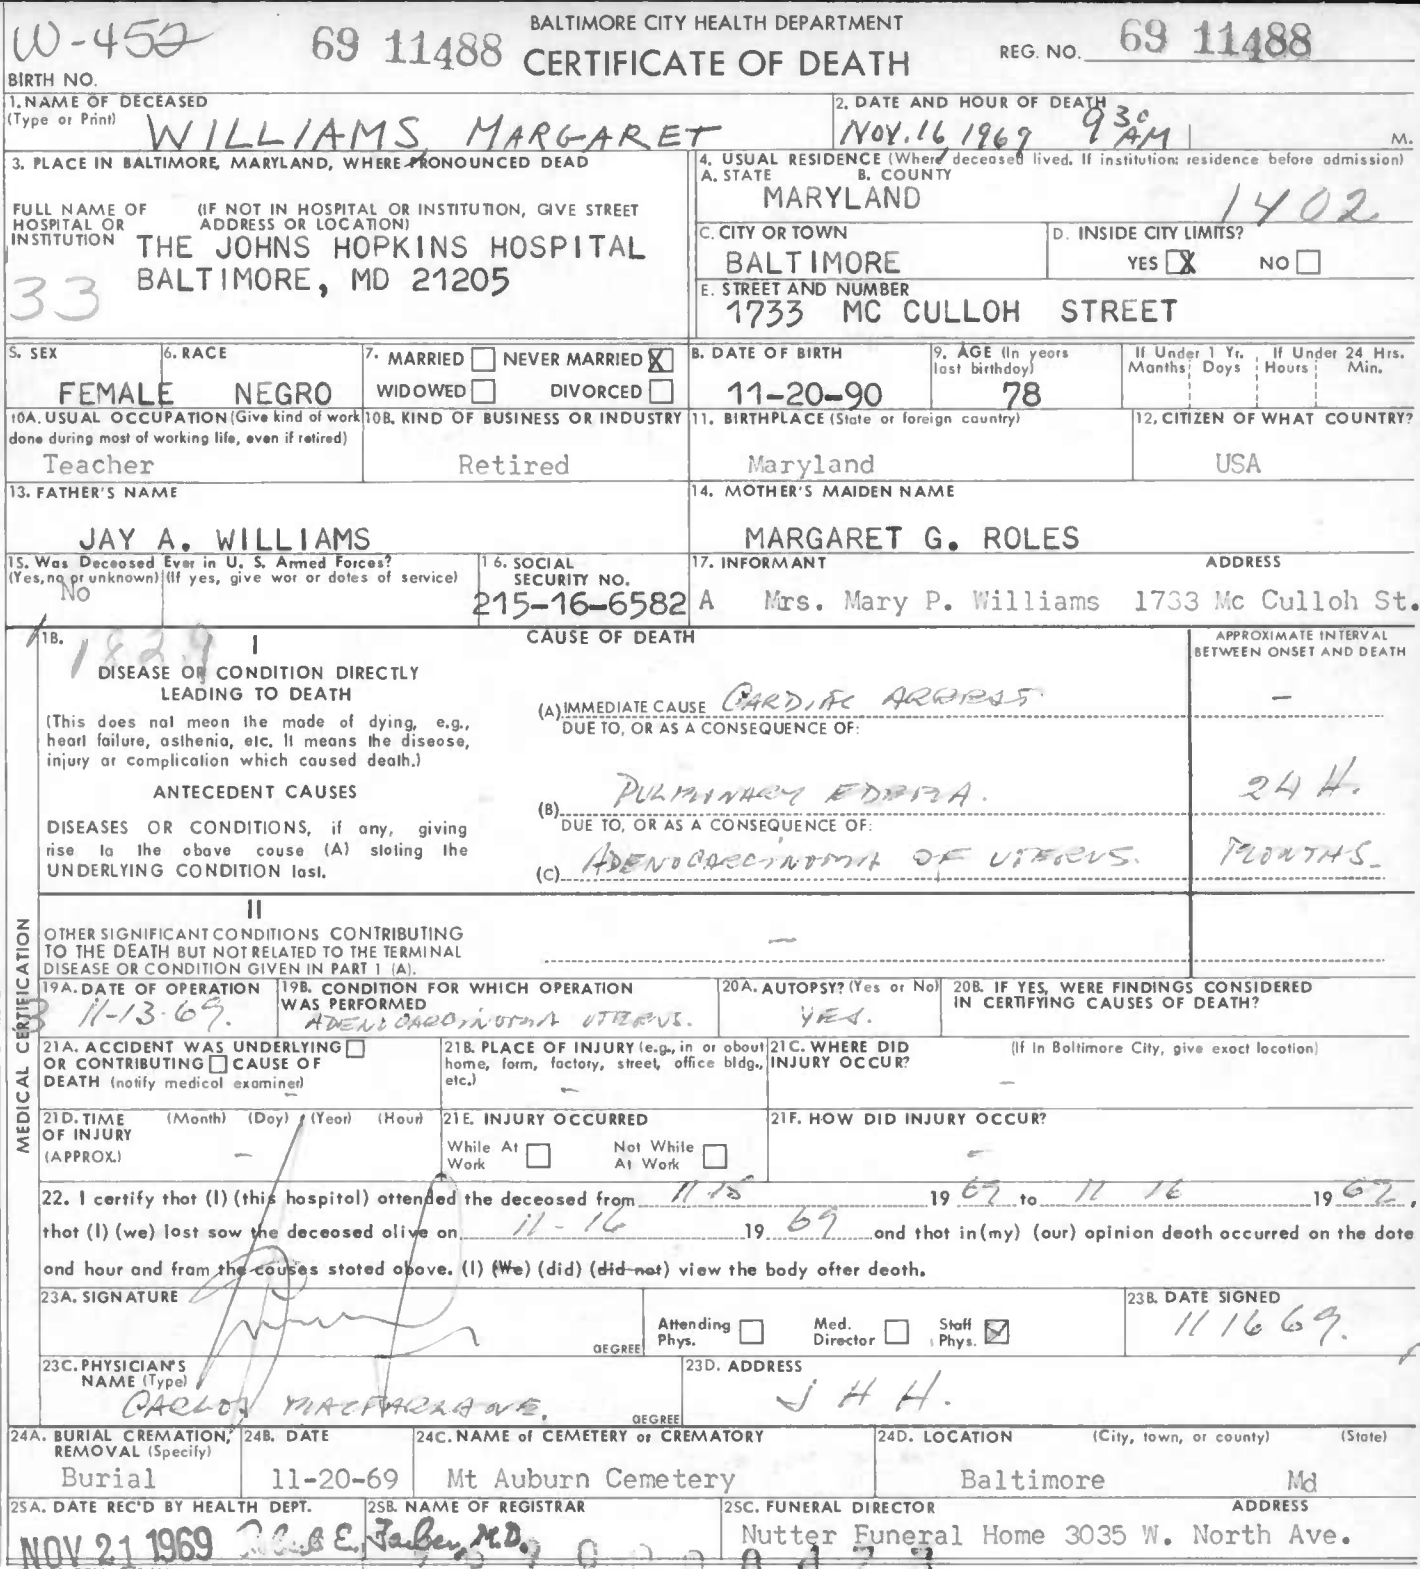 W-452
69 11488
BALTIMORE CITY HEALTH DEPARTMENT
CERTIFICATE OF DEATH
REG. NO. 69 11488
BIRTH NO.
1. NAME OF DECEASED
(Type or Print) WILLIAMS, MARGARET
2. DATE AND HOUR OF DEATH
NOV. 16, 1969 9 30 AM M.
3. PLACE IN BALTIMORE, MARYLAND, WHERE PRONOUNCED DEAD
FULL NAME OF HOSPITAL OR INSTITUTION
(IF NOT IN HOSPITAL OR INSTITUTION, GIVE STREET ADDRESS OR LOCATION)
THE JOHNS HOPKINS HOSPITAL
BALTIMORE, MD 21205
33
4. USUAL RESIDENCE (Where deceased lived. If institution: residence before admission)
A. STATE B. COUNTY
MARYLAND 1402
C. CITY OR TOWN
BALTIMORE
D. INSIDE CITY LIMITS?
YES X NO
E. STREET AND NUMBER
1733 MC CULLOH STREET
5. SEX
FEMALE
6. RACE
NEGRO
7. MARRIED NEVER MARRIED X
WIDOWED DIVORCED
8. DATE OF BIRTH
11-20-90
9. AGE (In years last birthday)
78
If Under 1 Yr. Months Days
If Under 24 Hrs. Hours Min.
10A. USUAL OCCUPATION (Give kind of work done during most of working life, even if retired)
Teacher
10B. KIND OF BUSINESS OR INDUSTRY
Retired
11. BIRTHPLACE (State or foreign country)
Maryland
12. CITIZEN OF WHAT COUNTRY?
USA
13. FATHER'S NAME
JAY A. WILLIAMS
14. MOTHER'S MAIDEN NAME
MARGARET G. ROLES
15. Was Deceased Ever in U. S. Armed Forces?
(Yes, no, or unknown) (If yes, give war or dates of service)
No
16. SOCIAL SECURITY NO.
215-16-6582 A
17. INFORMANT ADDRESS
Mrs. Mary P. Williams 1733 Mc Culloh St.
18. 182.9
I
CAUSE OF DEATH
APPROXIMATE INTERVAL BETWEEN ONSET AND DEATH
DISEASE OR CONDITION DIRECTLY
LEADING TO DEATH
(This does not mean the mode of dying, e.g.,
heart failure, asthenia, etc. It means the disease,
injury or complication which caused death.)
(A) IMMEDIATE CAUSE CARDIAC ARREST -
DUE TO, OR AS A CONSEQUENCE OF:
ANTECEDENT CAUSES
DISEASES OR CONDITIONS, if any, giving
rise to the above cause (A) stating the
UNDERLYING CONDITION last.
(B) PULMONARY EDEMA. 24 H.
DUE TO, OR AS A CONSEQUENCE OF:
(C) ADENOCARCINOMA OF UTERUS. MONTHS.
II
OTHER SIGNIFICANT CONDITIONS CONTRIBUTING
TO THE DEATH BUT NOT RELATED TO THE TERMINAL
DISEASE OR CONDITION GIVEN IN PART 1 (A).
-
MEDICAL CERTIFICATION
3
19A. DATE OF OPERATION
11-13-69.
19B. CONDITION FOR WHICH OPERATION WAS PERFORMED
ADENOCARCINOMA UTERUS.
20A. AUTOPSY? (Yes or No)
YES.
20B. IF YES, WERE FINDINGS CONSIDERED IN CERTIFYING CAUSES OF DEATH?
21A. ACCIDENT WAS UNDERLYING
OR CONTRIBUTING CAUSE OF
DEATH (notify medical examiner)
-
21B. PLACE OF INJURY (e.g., in or about home, farm, factory, street, office bldg., etc.)
-
21C. WHERE DID INJURY OCCUR? (If In Baltimore City, give exact location)
-
21D. TIME OF INJURY (APPROX.) (Month) (Day) (Year) (Hour)
-
21E. INJURY OCCURRED
While At Work Not While At Work
21F. HOW DID INJURY OCCUR?
-
22. I certify that (I) (this hospital) attended the deceased from 11 15 19 69 to 11 16 19 69,
that (I) (we) last saw the deceased alive on 11-16 19 69 and that in (my) (our) opinion death occurred on the date
and hour and from the causes stated above. (I) (We) (did) (did not) view the body after death.
23A. SIGNATURE
DEGREE
Attending Phys. Med. Director Staff Phys.
23B. DATE SIGNED
11 16 69.
23C. PHYSICIAN'S NAME (Type)
CARLOS MACFARLANE.
DEGREE
23D. ADDRESS
J H H.
24A. BURIAL CREMATION, REMOVAL (Specify)
Burial
24B. DATE
11-20-69
24C. NAME of CEMETERY or CREMATORY
Mt Auburn Cemetery
24D. LOCATION (City, town, or county) (State)
Baltimore Md
25A. DATE REC'D BY HEALTH DEPT.
NOV 21 1969
25B. NAME OF REGISTRAR
E. Farber, M.D.
25C. FUNERAL DIRECTOR ADDRESS
Nutter Funeral Home 3035 W. North Ave.